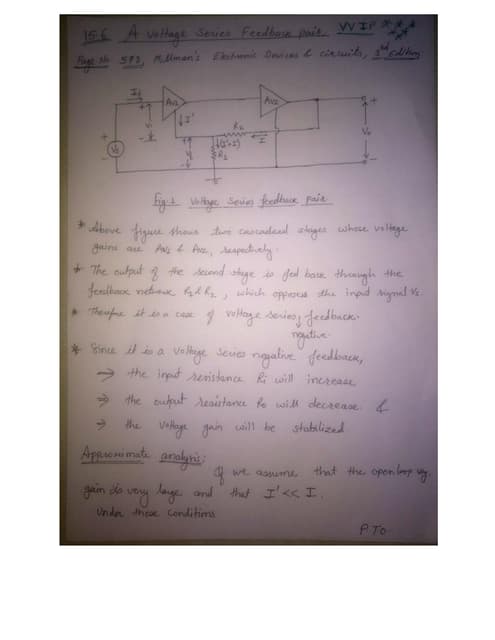 15.6 A Voltage Series Feedback pair. VVIP
Page No 592, Millman's Electronic Devices & circuits, 3rd Edition
Is
Av1
Av2
+
Vi
-
I'
R2
(I'+I)
I
R1
Vs
Vo
Fig.1 Voltage Series feedback Pair
* Above figure shows two cascaded stages whose voltage
gains are Av1 & Av2, respectively.
* The output of the second stage is fed back through the
feedback network R1 & R2, which opposes the input signal Vs.
* Therefore it is a case of voltage series feedback.
negative
* Since it is a Voltage Series negative feedback,
→ the input resistance Ri will increase
→ the output resistance Ro will decrease &
→ the Voltage gain will be stabilized
Approximate analysis:
If we assume that the open loop vtg.
gain is very large and that I' << I.
Under these conditions
P.T.O-